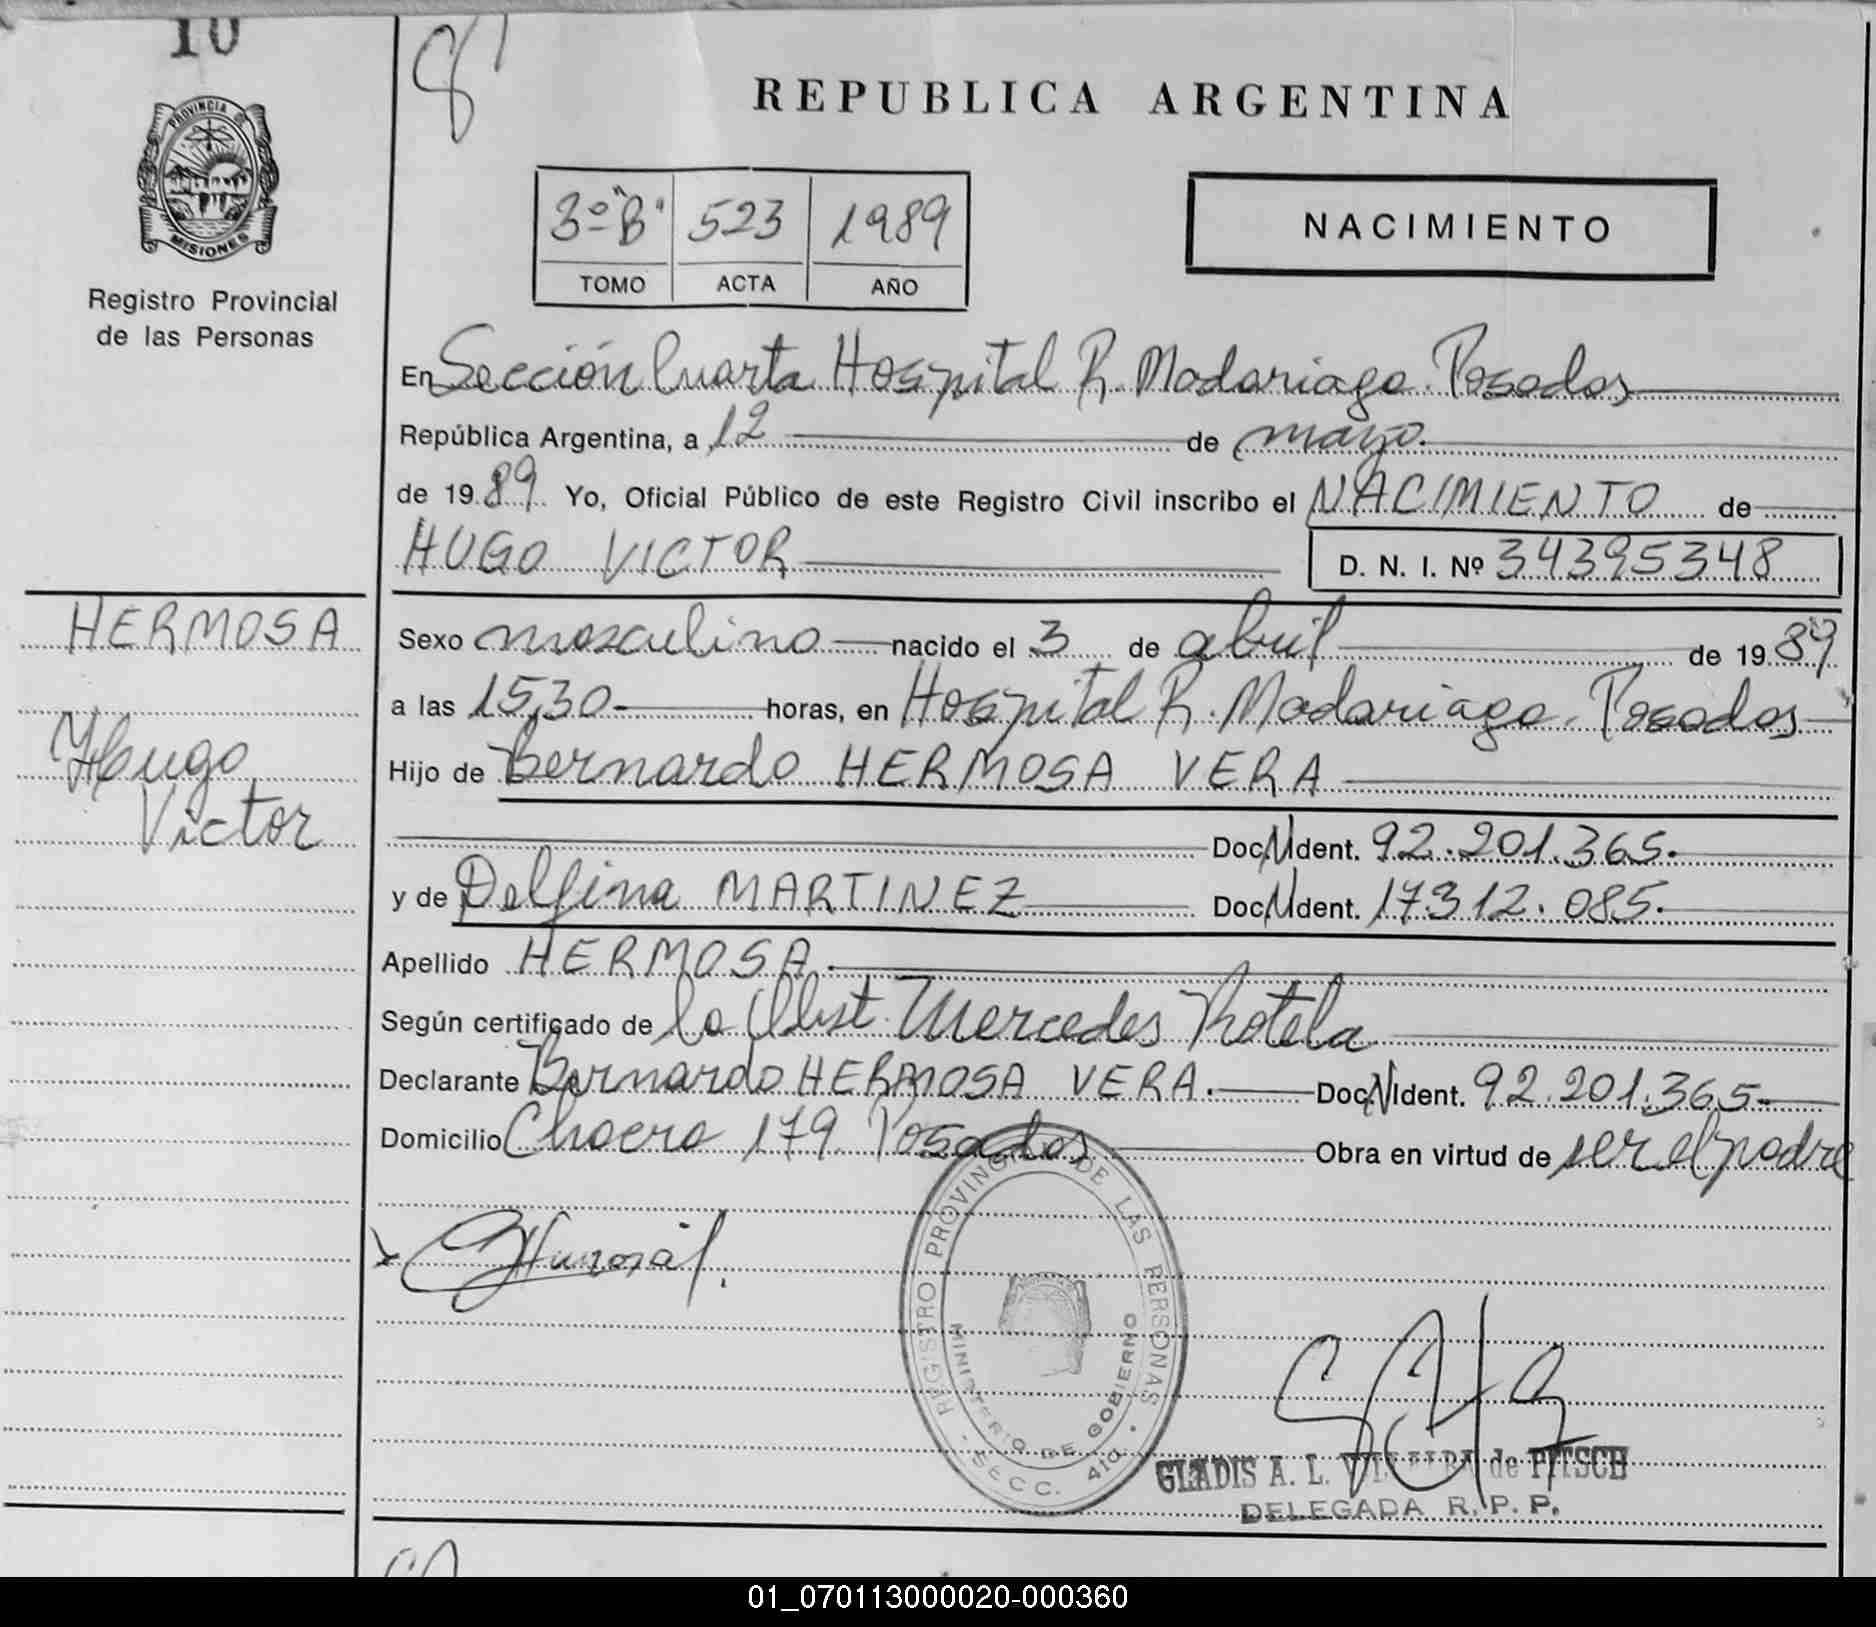 10
PROVINCIA DE
MISIONES
Registro Provincial
de las Personas
HERMOSA
Hugo
Victor
REPUBLICA ARGENTINA
3º "B" 523 1989
TOMO ACTA AÑO
NACIMIENTO
En Sección Cuarta Hospital R. Madariaga. Posadas
República Argentina, a 12 de mayo.
de 1989 Yo, Oficial Público de este Registro Civil inscribo el NACIMIENTO de
HUGO VICTOR D. N. I. Nº 34395348
Sexo masculino nacido el 3 de abril de 1989
a las 15,30 horas, en Hospital R. Madariaga. Posadas
Hijo de Bernardo HERMOSA VERA
Doc. N Ident. 92.201.365.
y de Delfina MARTINEZ Doc. N Ident. 17312.085.
Apellido HERMOSA.
Según certificado de la Obst. Mercedes Rotela
Declarante Bernardo HERMOSA VERA. Doc. N Ident. 92.201.365
Domicilio Chacra 179. Posadas Obra en virtud de ser el padre
REGISTRO PROVINCIAL DE LAS PERSONAS
MINISTERIO DE GOBIERNO
SECC. 4ta.
GLADIS A. L. de PITSCH
DELEGADA R. P. P.
01_070113000020-000360